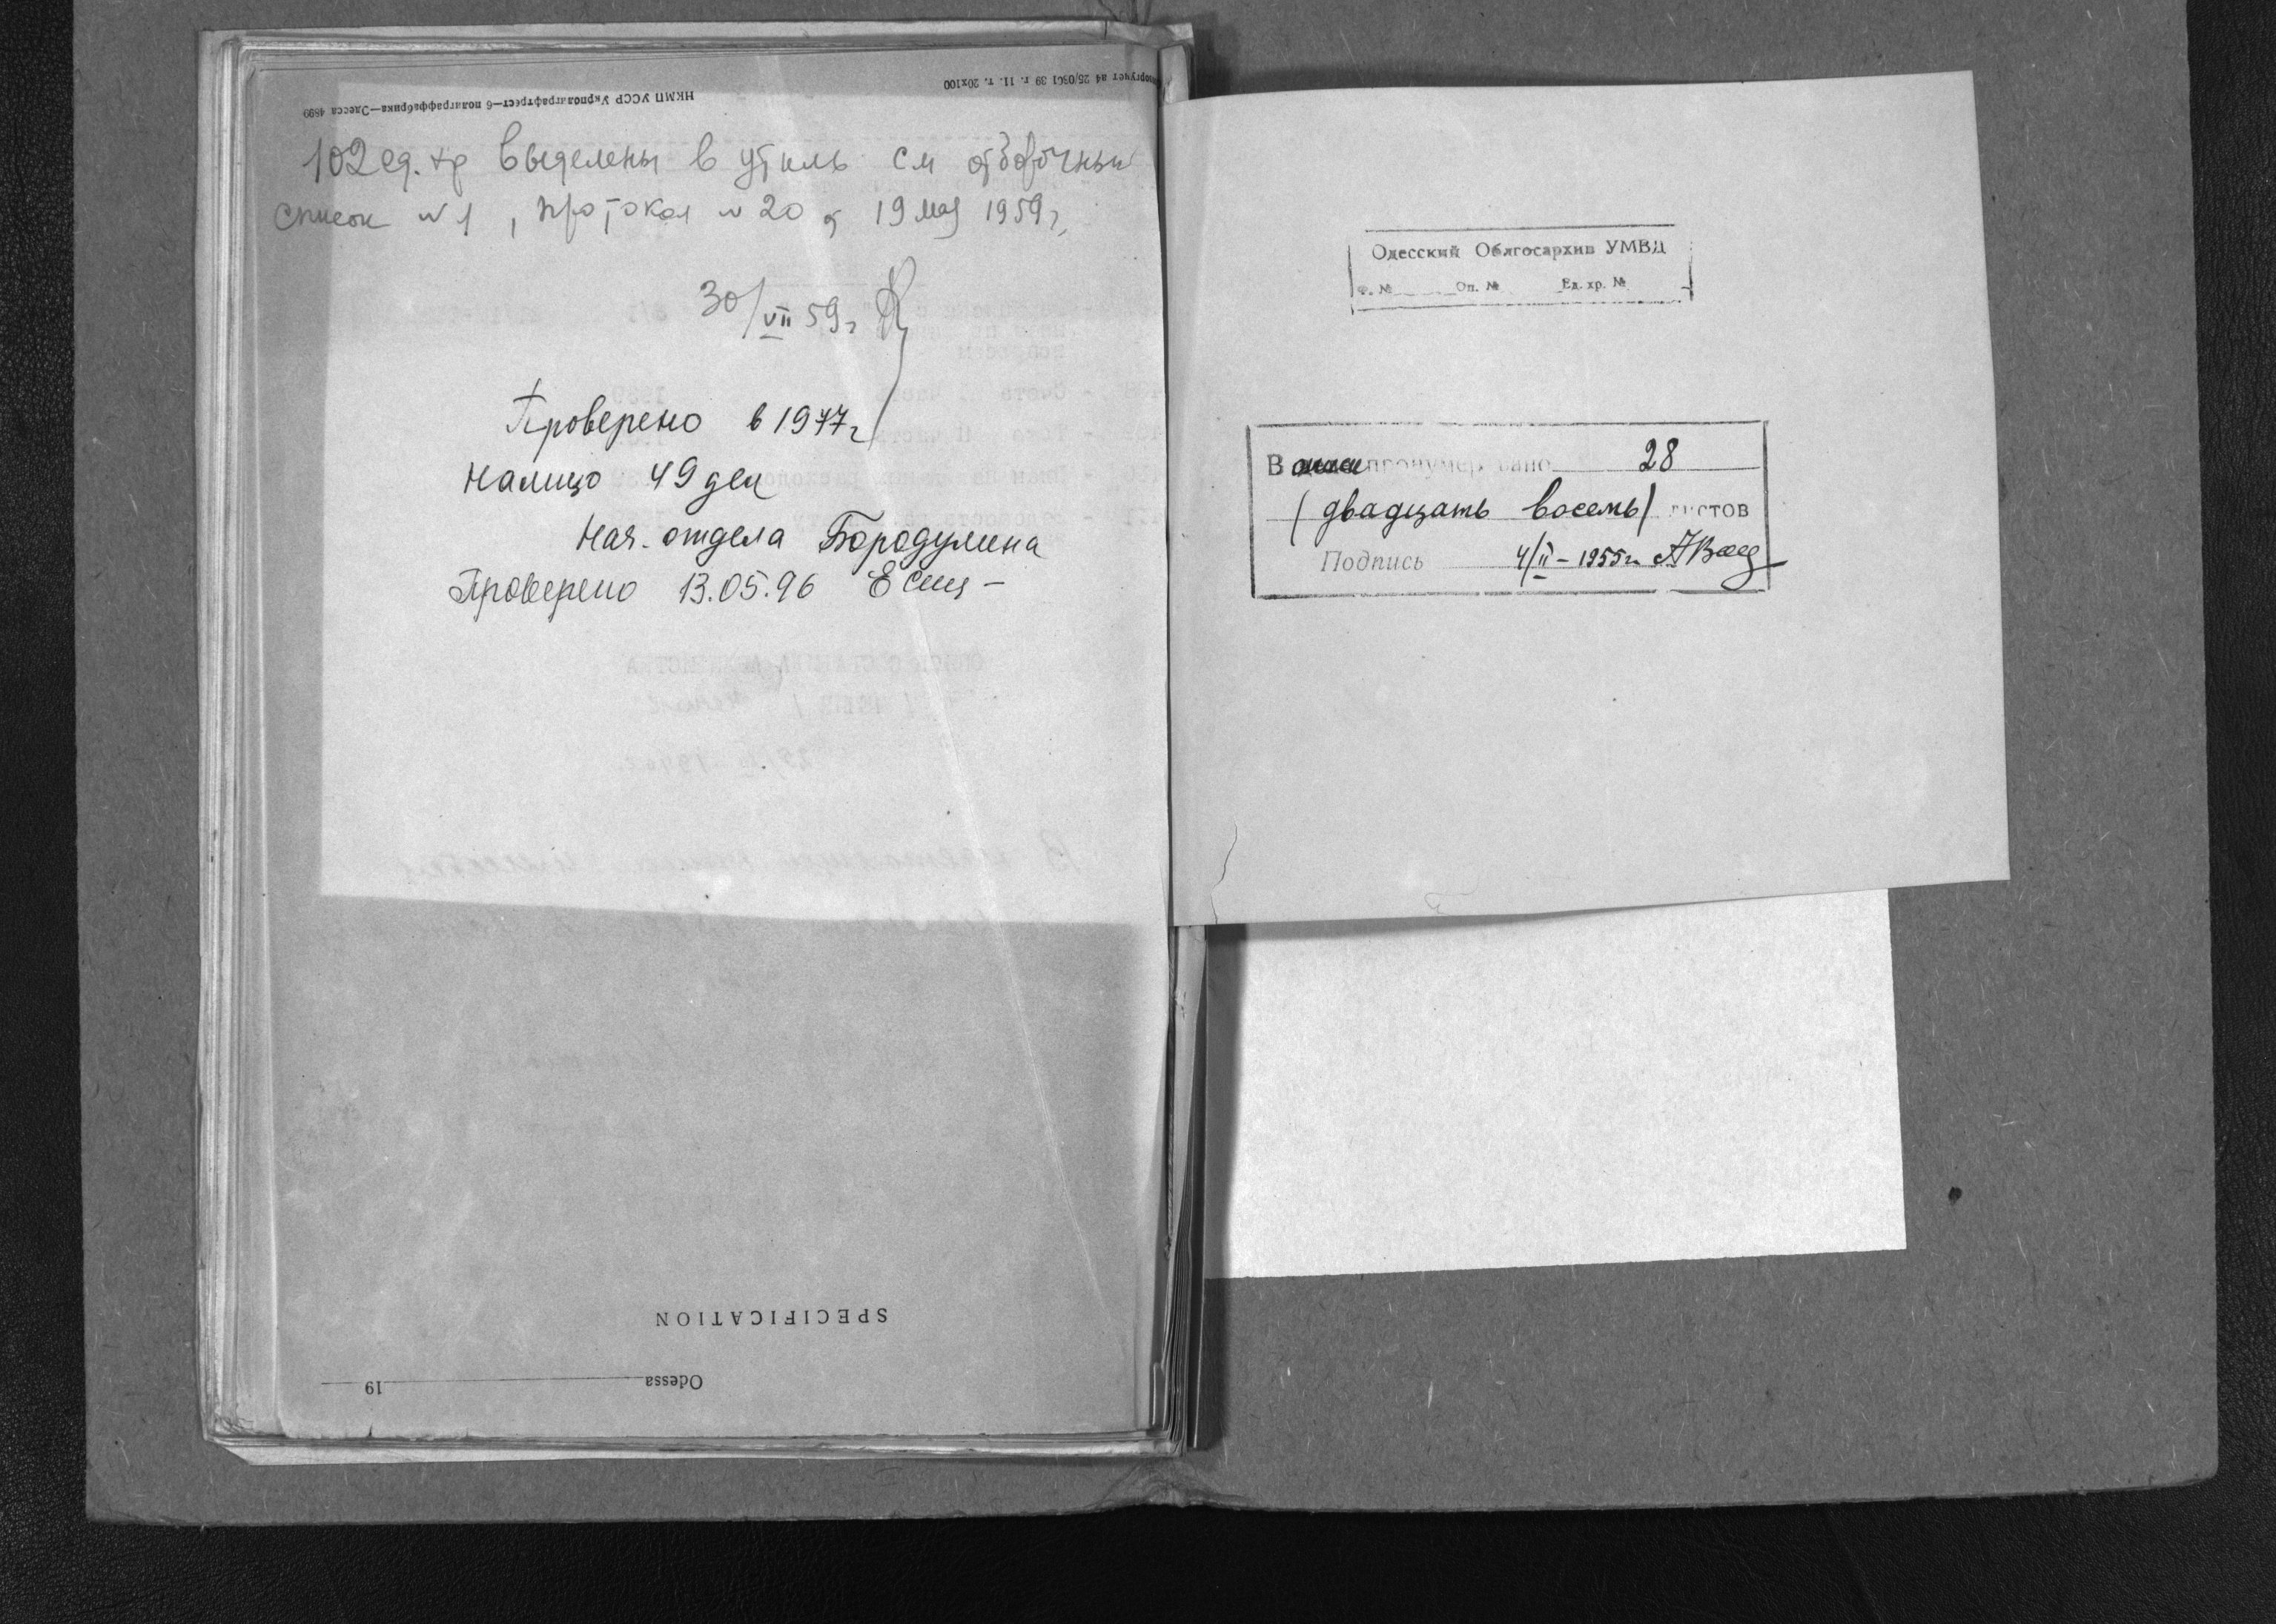 НКМП УССР Укрполиграфтрест—6 полиграффабрика—Одесса 4899
25/0301 39 г. 11. т. 20х100
102 ед. хр выделены в утиль см отборочный
список №1, протокол №20 от 19 мая 1959 г,
30/VII 59 г
Проверено в 1977 г
Налицо 49 дел
Нач. отдела Бородулина
Проверено 13.05.96
SPECIFICATION
Odessa 19
Одесский Облгосархив УМВД
Ф. № Оп. № Ед. хр. №
В описи пронумеровано 28
(двадцать восемь) листов
Подпись 4/II – 1955 г.